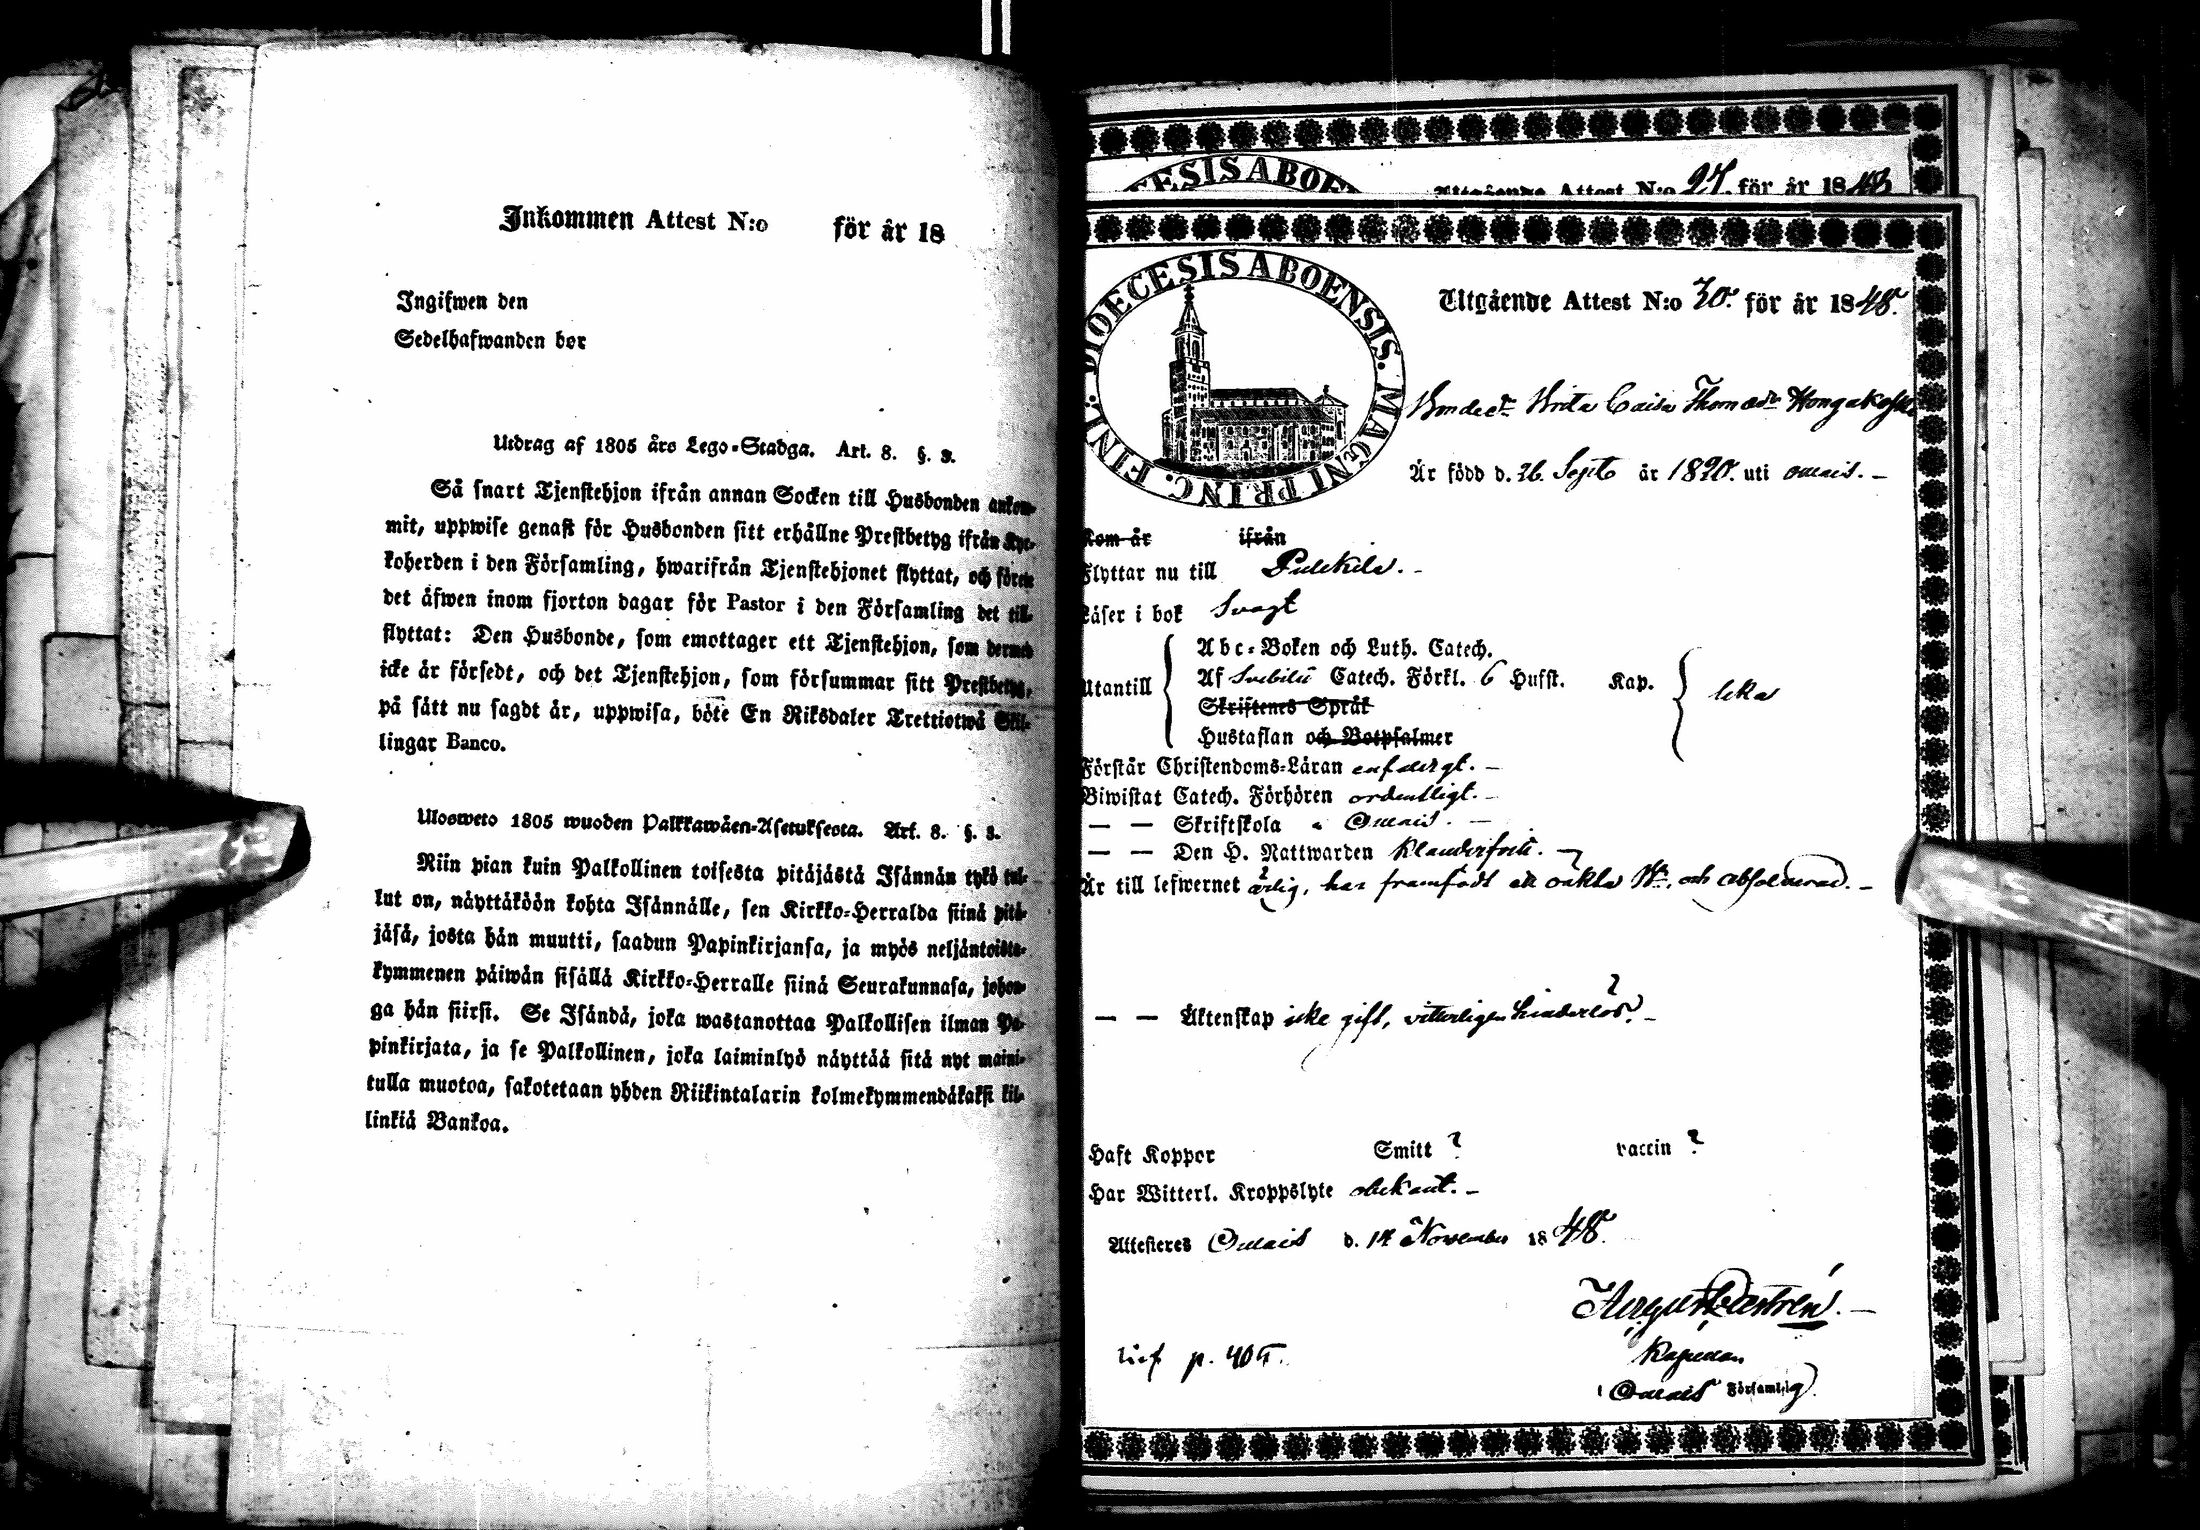 Inkommen Attest N:o för år 18
Ingifwen den
Sedelhafwanden bor
Utdrag af 1805 års Lego-Stadga. Art. 8. §. 3.
Så snart Tjenstehjon ifrån annan Socken till Husbonden ankom-
mit, uppwise genast för Husbonden sitt erhållne Prestbetyg ifrån Kyr-
koherden i den Församling, hwarifrån Tjenstehjonet flyttat, och förete
det äfwen inom fjorton dagar för Pastor i den Församling det till-
flyttat: Den Husbonde, som emottager ett Tjenstehjon, som dermed
icke är försedt, och det Tjenstehjon, som försummar sitt Prestbetyg,
på sätt nu sagdt är, uppwisa, böte En Riksdaler Trettiotwå Skil-
lingar Banco.
Ulosweto 1805 wuoden Palkkawäen-Asetuksesta. Art. 8. §. 3.
Niin pian kuin Palkollinen toisesta pitäjästä Isännän tykö tul-
lut on, näyttäköön kohta Isännälle, sen Kirkko-Herralda siinä pitä-
jäsä, josta hän muutti, saadun Papinkirjansa, ja myös neljäntoista-
kymmenen päiwän sisällä Kirkko-Herralle siinä Seurakunnasa, johon-
ga hän siirsi. Se Isändä, joka wastanottaa Palkollisen ilman Pa-
pinkirjata, ja se Palkollinen, joka laiminlyö näyttää sitä nyt maini-
tulla muotoa, sakotetaan yhden Riikintalarin kolmekymmendäkaksi kil-
linkiä Bankoa.
DIOECESIS ABOENSIS
Utgående Attest N:o 27. för år 1848
DIOECESIS ABOENSIS. MAGNI PRINC. FINL.
Utgående Attest N:o 30. för år 1848.
Brita Caisa Thomasdr Hongakoski
Är född d. 26. Septb år 1820. uti
Kom år ifrån
Flyttar nu till Pulkila. -
Läser i bok Svagt
Utantill
Abc-Boken och Luth. Catech.
Af Svebilii Catech. Förkl. 6 Hufst. Kap.
Skriftenes Språk
Hustaflan och Botpsalmer
Förstår Christendoms-Läran enfaldigt. -
Biwistat Catech. Förhören ordentligt. -
— — Skriftskola
— — Den H. Nattwarden klanderfritt. -
Är till lefwernet ärlig, har framfödt ett oäkta och absolverad. -
— — Äktenskap icke gift, vitterligen hinderlös? -
Haft Koppor Smitt ? vaccin ?
Har Witterl. Kroppslyte obekant. -
Attesteras d. 14 November 1848.
Kapellan
Församling